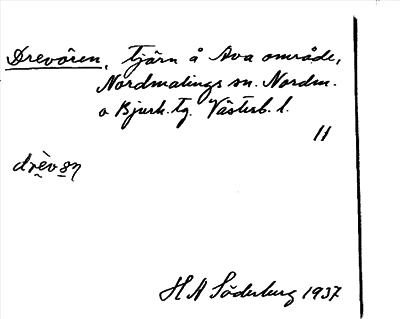 Drevören, tjärn å Ava område,
Nordmalings sn. Nordm.
o Bjurh. tg. Västerb. l.
11
H A Söderberg 1937